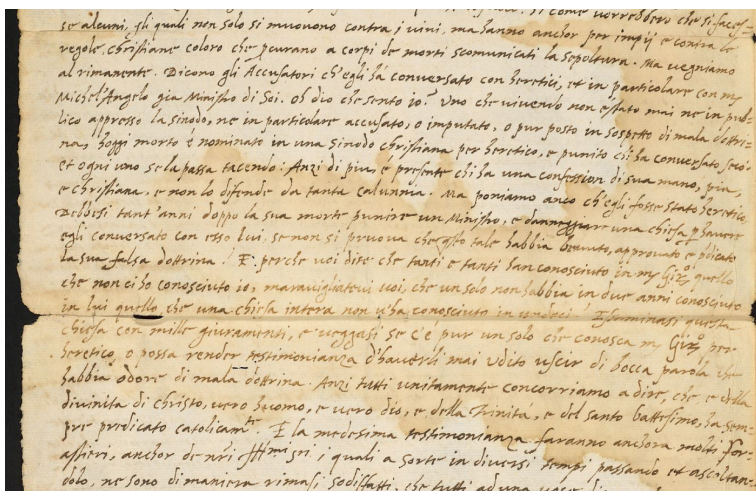 si come vorrebbero che si faces
se alcuni, gli quali non solo si muovono contra i vivi, ma hanno anchor per impij e contra le
regole christiane coloro che pcurano a corpi de morti scomunicati la sepoltura. Ma vegniamo
al rimanente. Dicono gli Accusatori ch'egli hà conversato con heretici, et in particolare con mr
Michel'Angelo gia Ministro di Soi. Oh dio che sento io? Uno che vivendo non è stato mai ne in pub=
lico appresso la sinodo, ne in particolare accusato, o imputato, o pur posto in sospetto di mala dottri=
na, hoggi morto è nominato in una sinodo christiana per heretico, e punito chi ha conversato seco:
et ogni uno se la passa tacendo: Anzi di piu, è presente chi ha una confession di sua mano, pia,
e christiana, e non lo difende da tanta calunnia. Ma poniamo anco ch'egli fosse stato heretico.
Debbesi tant'anni doppo la sua morte punire un Ministro, e danneggiare una chiesa p havere
egli conversato con esso lui, se non si pruova che qsto tale habbia bevuto, approvato e pdicato
la sua falsa dottrina? E perche voi dite che tanti e tanti han conosciuto in mr Giro quello
che non ci ho conosciuto io, maravigliatevi voi, che un solo non habbia in due anni conosciuto
in lui quello che una chiesa intera non v'ha conosciuto in undeci? Esseminasi questa
chiesa con mille giuramenti, e veggasi se c'è pur un solo che conosca mr Giro per
heretico, o possa render testimonianza d'haverli mai udito uscir di bocca parola che
habbia odore di mala dottrina. Anzi tutti unitamente concorriamo a dire, che, e della
divinita di Christo, vero huomo, e vero dio, e della Trinita, e del santo battesimo, ha sem=
pre predicato catolicamte. E la medesima testimonianza faranno anchora molti for=
astieri, anchor de nri Illmi sri, i quali a sorte in diversi tempi passando et ascoltan
dolo, ne sono di maniera rimasi sodisfatti, che tutti ad una voce